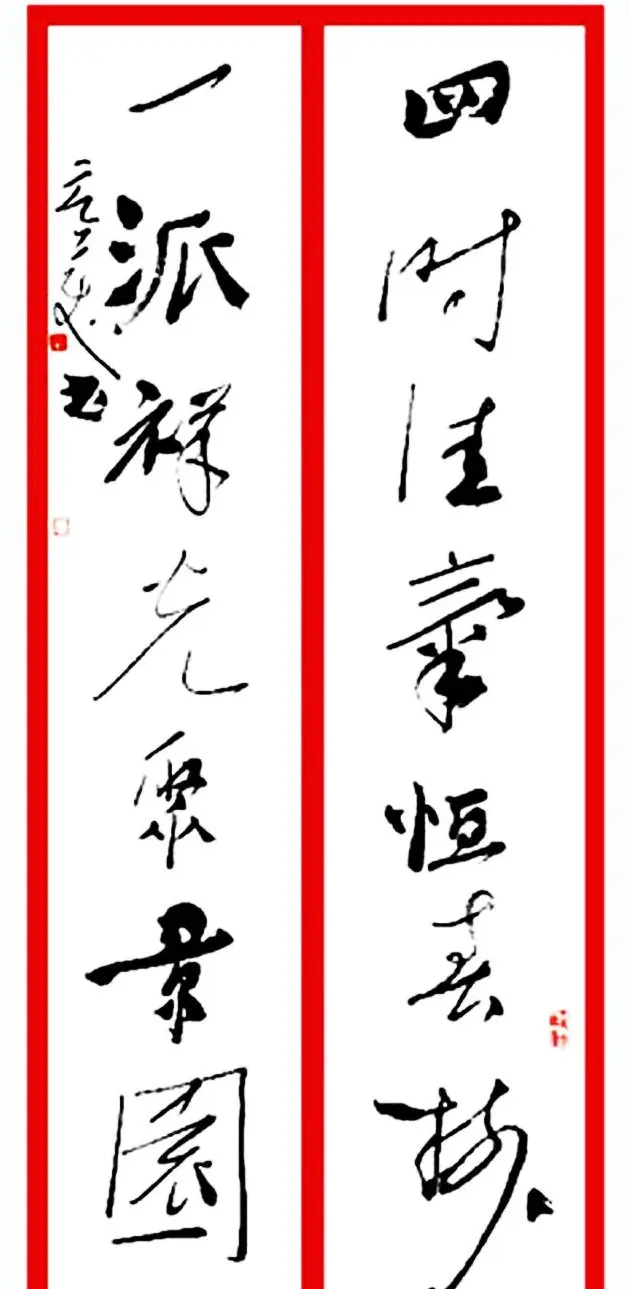 四时佳氣恒春树
一派祥光聚景園
书